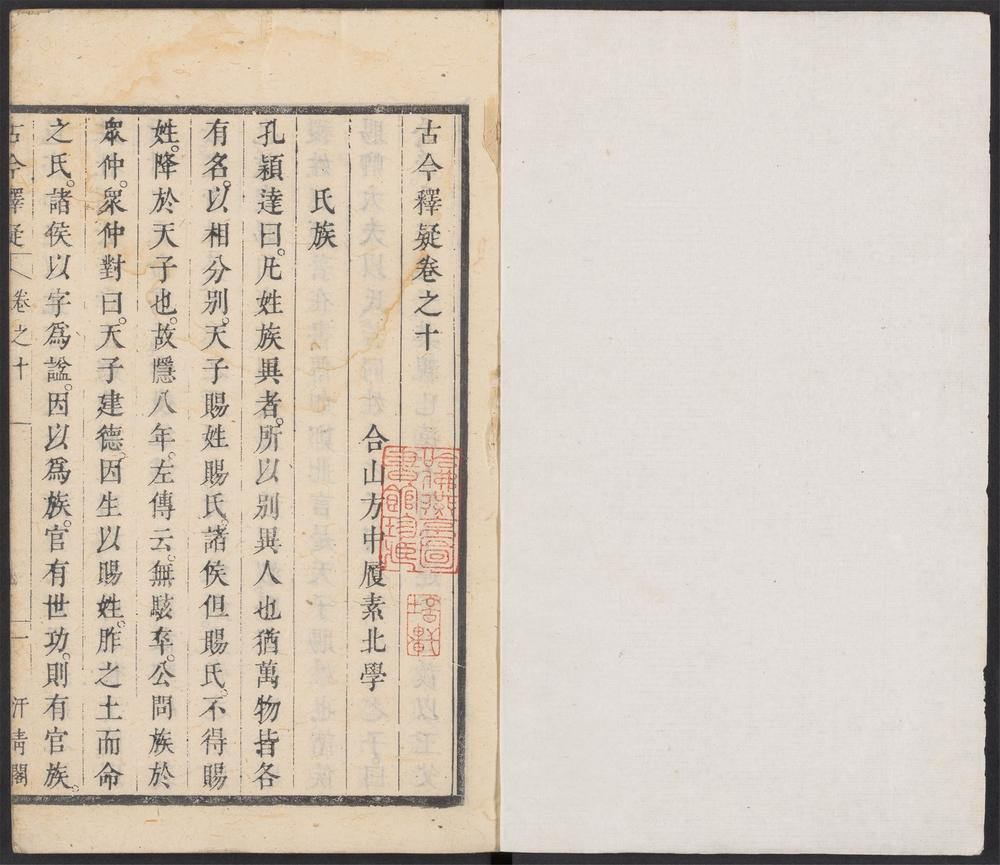 古今釋疑卷之十
合山方中履素北學
氏族
孔穎達曰。凡姓族異者。所以別異人也猶萬物皆各
有名。以相分別。天子賜姓賜氏。諸侯但賜氏。不得賜
姓。降於天子也。故隱八年。左傳云。無駭卒。公問族於
眾仲。眾仲對曰。天子建德。因生以賜姓。胙之土而命
之氏。諸侯以字爲諡。因以爲族。官有世功。則有官族。
古今釋疑
卷之十
一
汗青閣